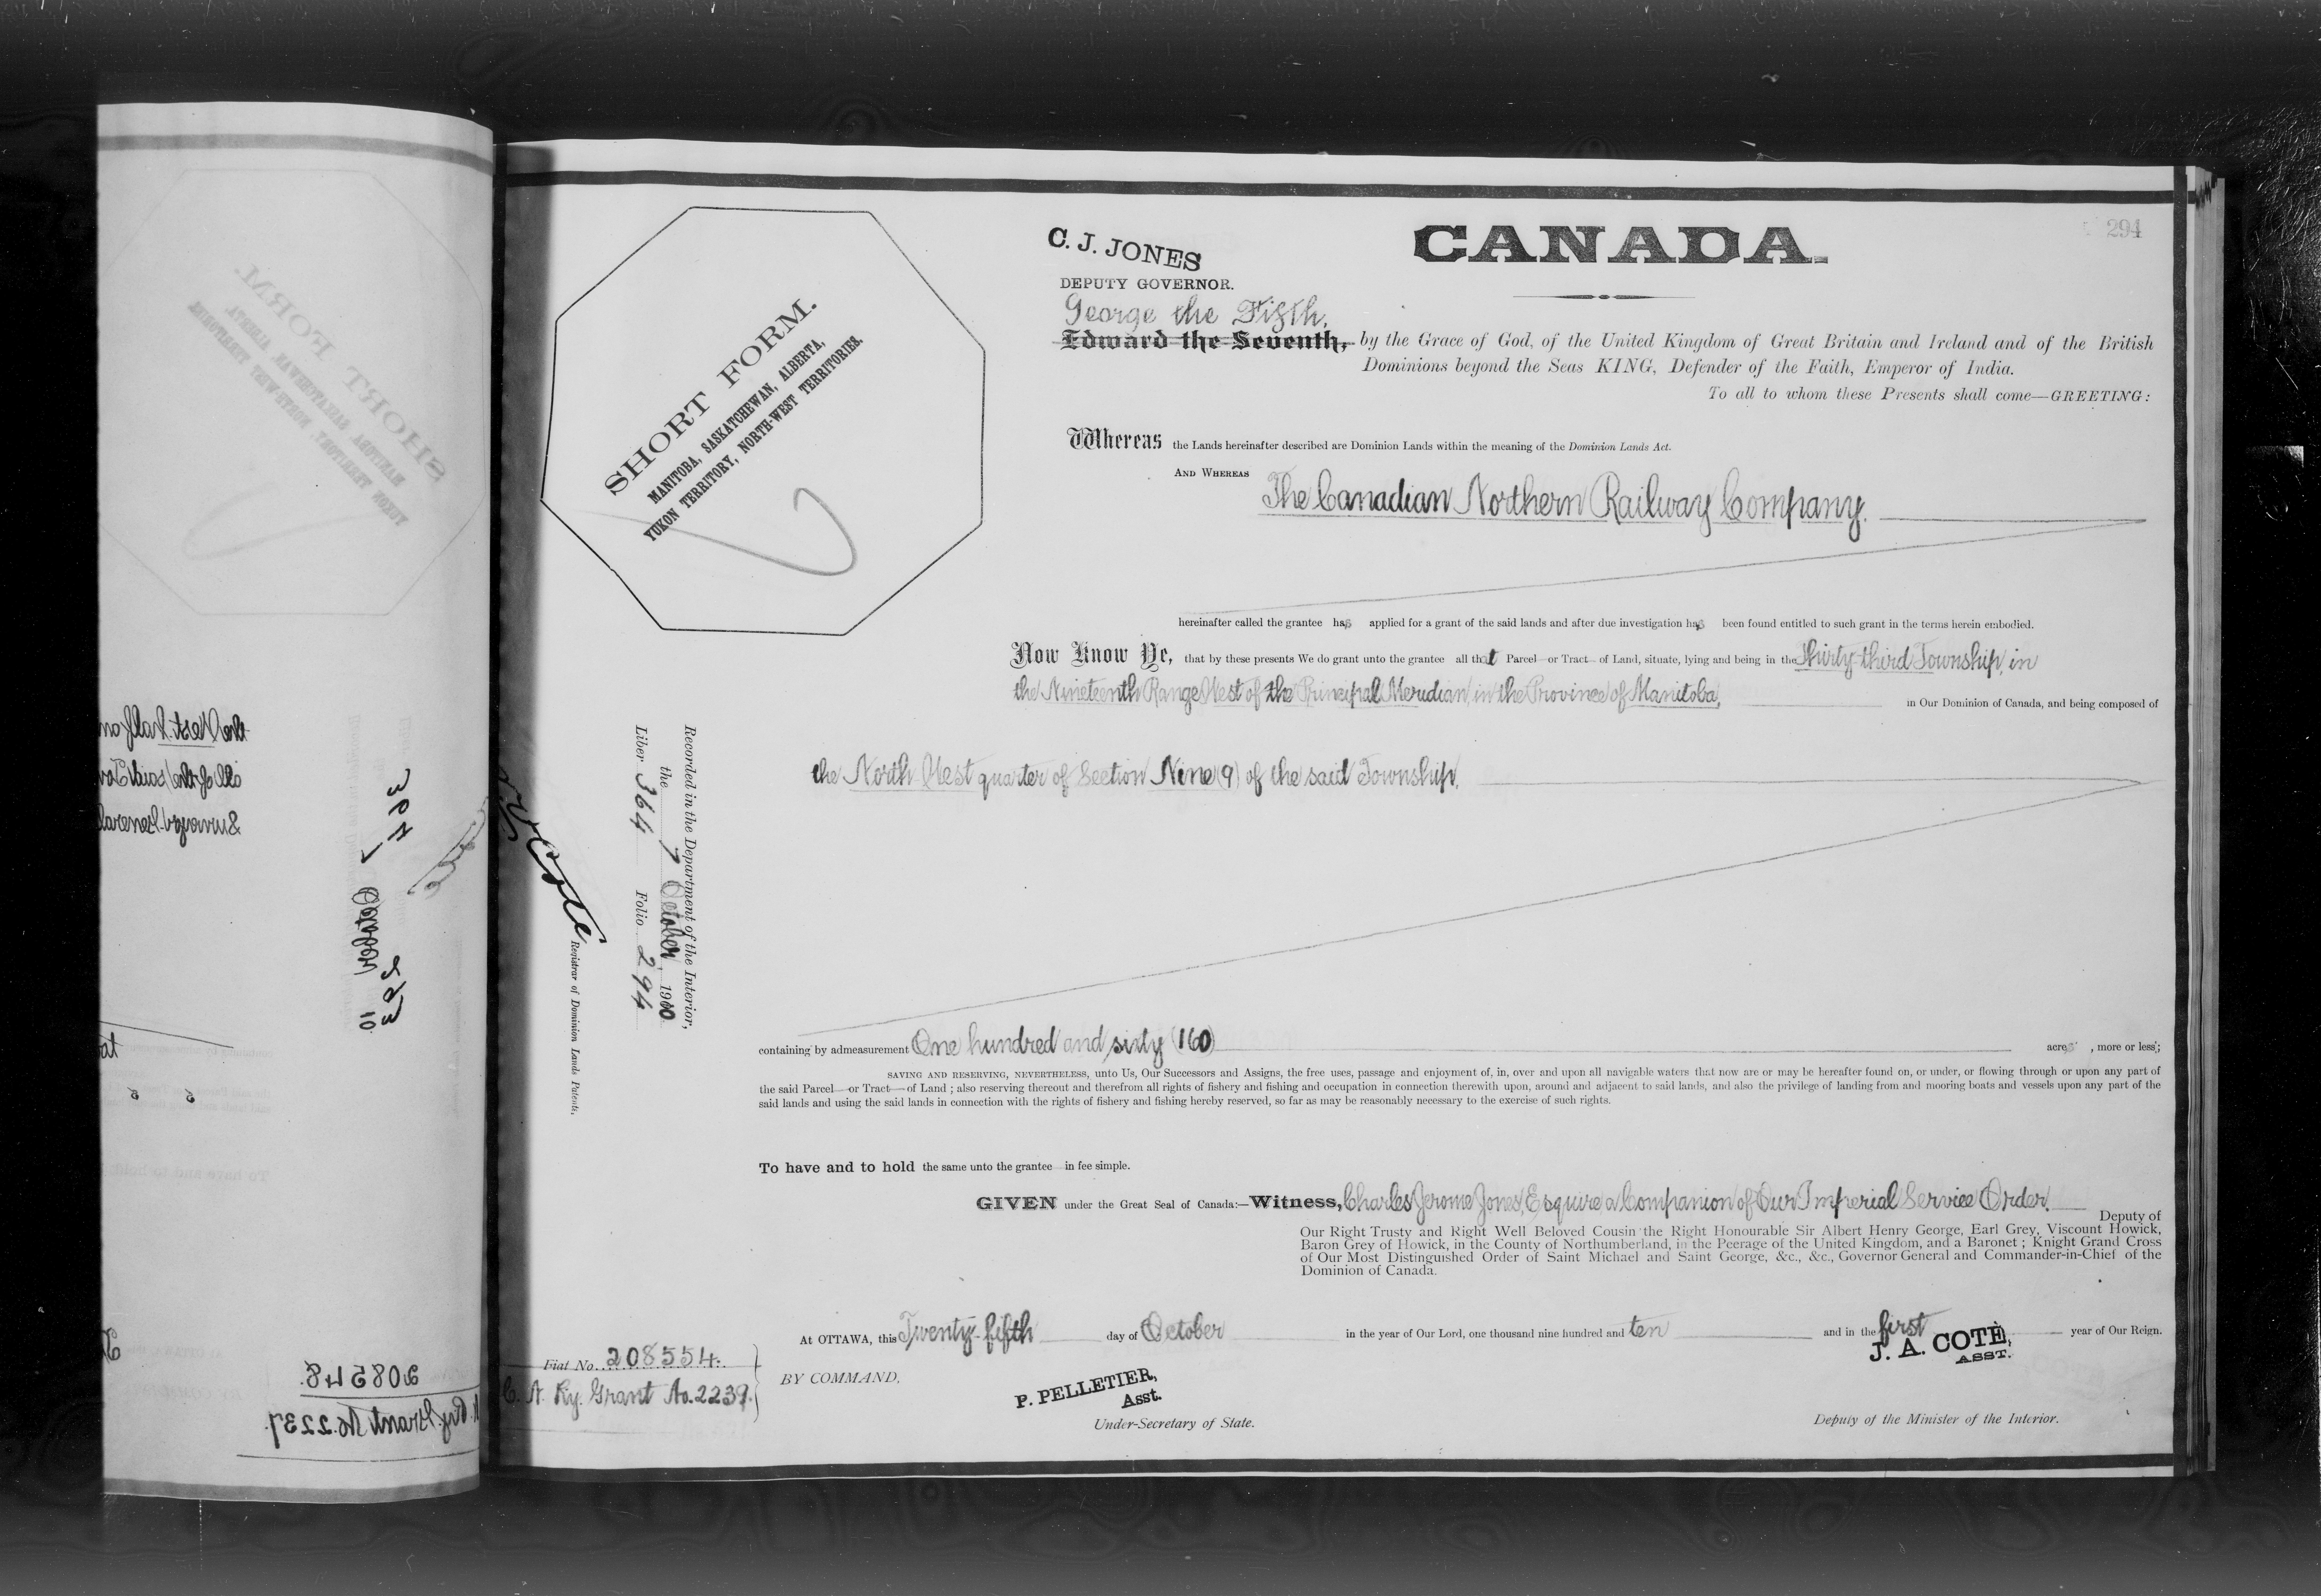 294
C. J. JONES
DEPUTY GOVERNOR.
CANADA.
George the Fifth,
Edward the Seventh, by the Grace of God, of the United Kingdom of Great Britain and Ireland and of the British
Dominions beyond the Seas KING, Defender of the Faith, Emperor of India.
To all to whom these Presents shall come—GREETING:
SHORT FORM.
MANITOBA, SASKATCHEWAN, ALBERTA,
YUKON TERRITORY, NORTH-WEST TERRITORIES.
Whereas the Lands hereinafter described are Dominion Lands within the meaning of the Dominion Lands Act.
AND WHEREAS The Canadian Northern Railway Company.
hereinafter called the grantee has applied for a grant of the said lands and after due investigation has been found entitled to such grant in the terms herein embodied.
Now Know Ye, that by these presents We do grant unto the grantee all that Parcel or Tract of Land, situate, lying and being in the Thirty-third Township, in
the Nineteenth Range West of the Principal Meridian, in the Province of Manitoba, in Our Dominion of Canada, and being composed of
the North West quarter of Section Nine (9) of the said Township.
Recorded in the Department of the Interior,
the 7 October, 1910
Liber 364 Folio 294
Cote
Registrar of Dominion Lands Patents.
containing by admeasurement One hundred and sixty (160) acres, more or less;
SAVING AND RESERVING, NEVERTHELESS, unto Us, Our Successors and Assigns, the free uses, passage and enjoyment of, in, over and upon all navigable waters that now are or may be hereafter found on, or under, or flowing through or upon any part of
the said Parcel or Tract of Land ; also reserving thereout and therefrom all rights of fishery and fishing and occupation in connection therewith upon, around and adjacent to said lands, and also the privilege of landing from and mooring boats and vessels upon any part of the
said lands and using the said lands in connection with the rights of fishery and fishing hereby reserved, so far as may be reasonably necessary to the exercise of such rights.
To have and to hold the same unto the grantee in fee simple.
GIVEN under the Great Seal of Canada:—Witness, Charles Jerome Jones, Esquire a Companion of Our Imperial Service Order. Deputy of
Our Right Trusty and Right Well Beloved Cousin the Right Honourable Sir Albert Henry George, Earl Grey, Viscount Howick,
Baron Grey of Howick, in the County of Northumberland, in the Peerage of the United Kingdom, and a Baronet ; Knight Grand Cross
of Our Most Distinguished Order of Saint Michael and Saint George, &c., &c., Governor General and Commander-in-Chief of the
Dominion of Canada.
At OTTAWA, this Twenty-fifth day of October in the year of Our Lord, one thousand nine hundred and ten and in the first year of Our Reign.
Fiat No. 208554.
C. N. Ry. Grant No. 2239.
BY COMMAND,
P. PELLETIER,
Asst.
Under-Secretary of State.
J. A. COTÉ,
ASST.
Deputy of the Minister of the Interior.